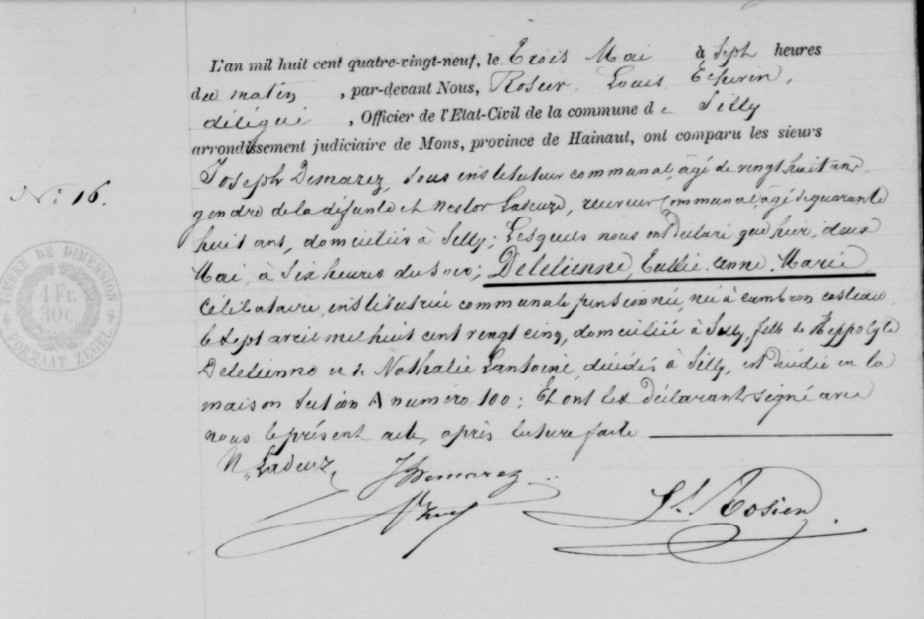 L'an mil huit cent quatre-vingt-neuf, le Trois Mai à Sept heures
du matin, par-devant Nous, Rosier Louis Echevin,
délégué, Officier de l'Etat-Civil de la commune de Silly
arrondissement judiciaire de Mons, province de Hainaut, ont comparu les sieurs
Joseph Demarez, sous instituteur communal, âgé de vingt huit ans
gendre de la défunte et Nestor Ladeuze, receveur communal, âgé de quarante
N° 16.
huit ans, domiciliés à Silly; Lesquels nous ont déclaré que hier, deux
Mai, à Six heures du soir; Deletienne, Eulalie Anne Marie
Célibataire, institutrice communale pensionnée, née à Cambron Casteau
le Sept avril mil huit cent vingt cinq, domiciliée à Silly, fille de Hippolyte
Deletienne et de Nathalie Lantoine, décédés à Silly, est décédée en la
maison Section A numéro 100; Et ont les déclarants signé avec
nous le présent acte, après lecture faite
N. Ladeuz
J Demarez
L. Rosier
TIMBRE DE DIMENSION
1 Fr.
30c
FORMAAT ZEGEL